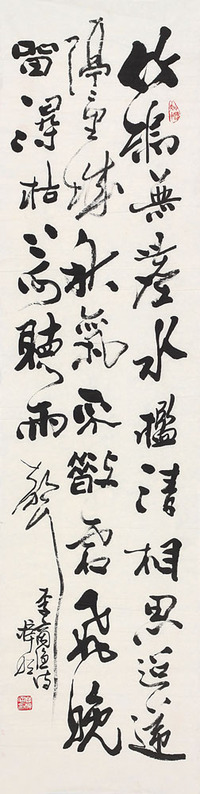 竹塢無塵水檻清相思迢遞
隔重城秋氣不散霜飛晚
留得枯荷聽雨聲
李商隱詩